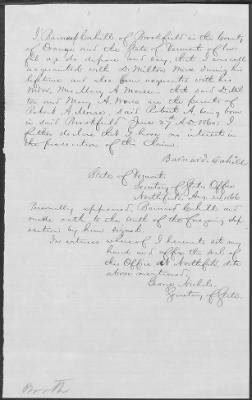 I, Barnard Cahill of Brookfield in the County
of Orange and the State of Vermont of lawful
age do depose and say, that I was well
acquainted with D. Milton Morse during his
lifetime and also am acquainted with his
widow Mrs Mary A. Morse that said D. Mil
ton and Mary A. Morse are the parents of
Robert A. Morse, said Robert A. being born
in said Brookfield June 27 A.D. 1860. I
further declare that I have no interest in
the prosecution of this claim.
Barnard Cahill
State of Vermont
Secretary of State Office
Northfield, Aug
Personally appeared, Barnard Cahill and
made oath to the truth of the foregoing dep
osition by him signed.
In witness whereof I hereunto set my
hand and affix the seal of
this Office at Northfield, date
above mentioned,
George Nichols
Secretary of State